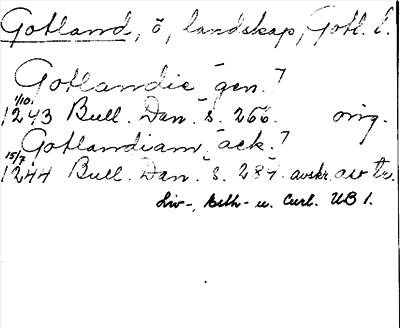 Gotland, ö, landskap, Gotl. l.
Gotlandie [gen.]
1/10 1243 Bull. Dan. s. 266. orig.
Gotlandiam [ack.]
15/7 1244 Bull. Dan. s. 287. avskr. av tr.
Liv-, Esth- u. Curl. UB 1.